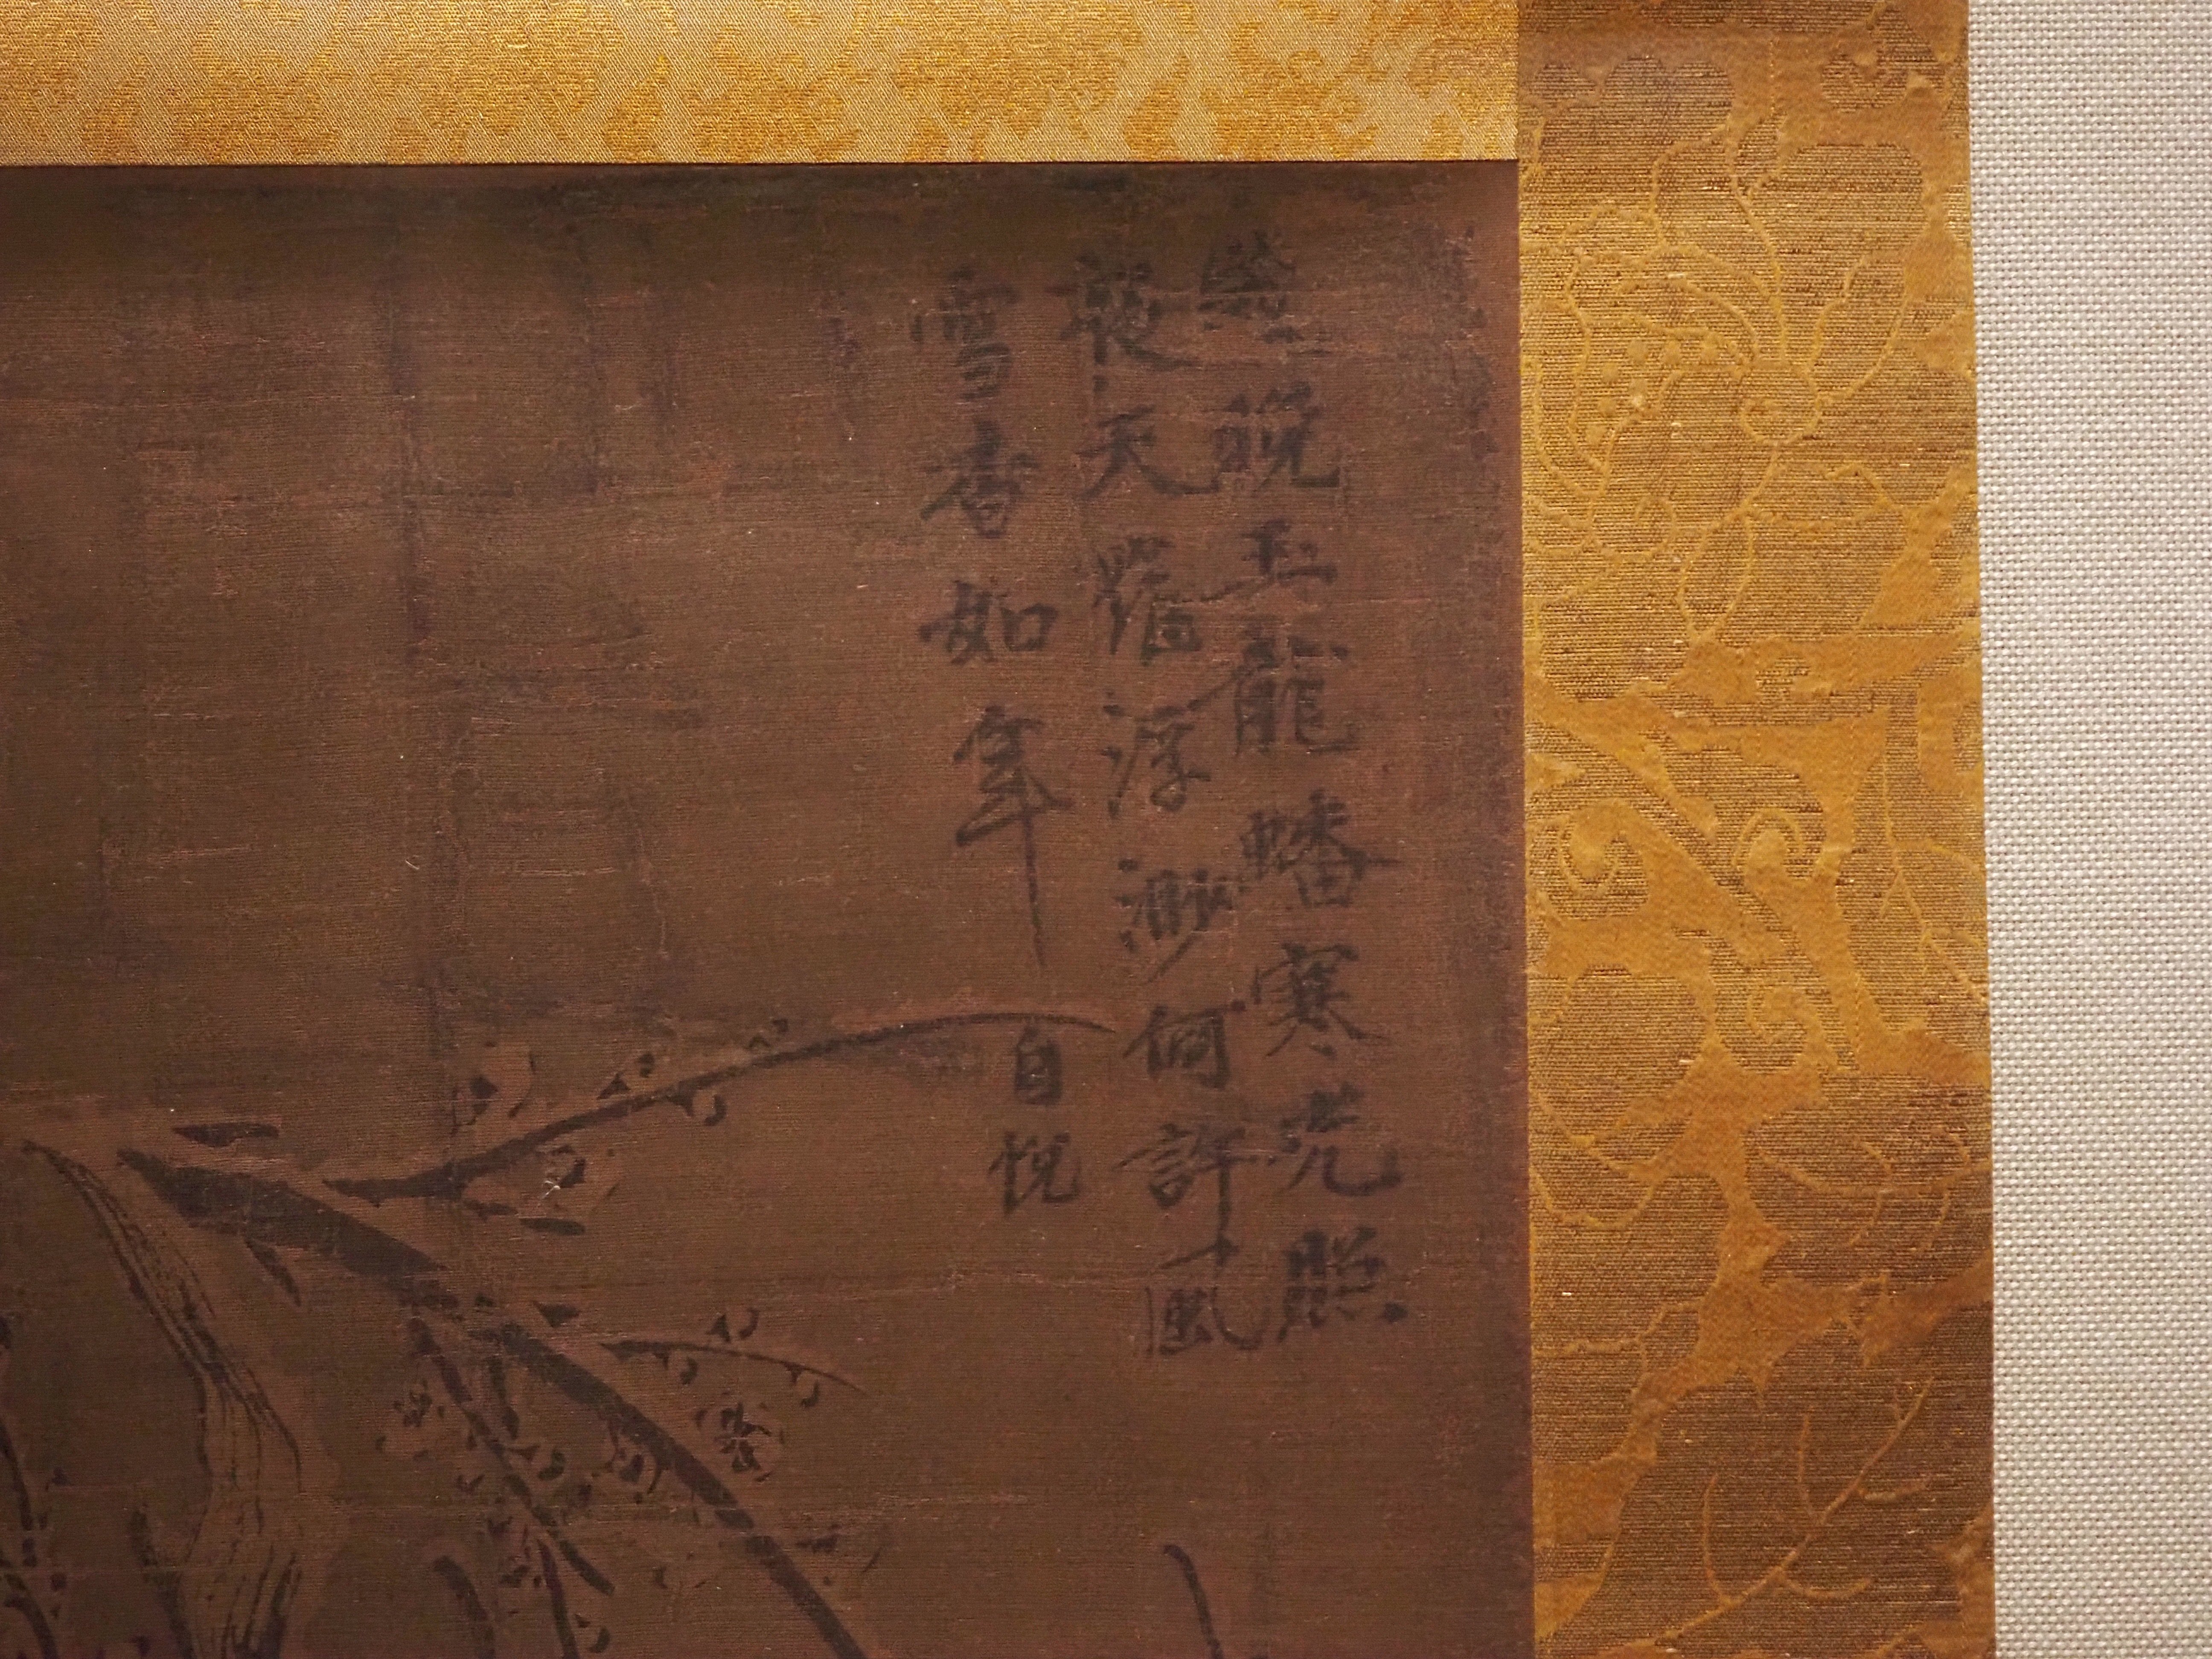 歲晚玉龍蟠寒光照
夜天羅浮渺何許風
雪香如年
自悅